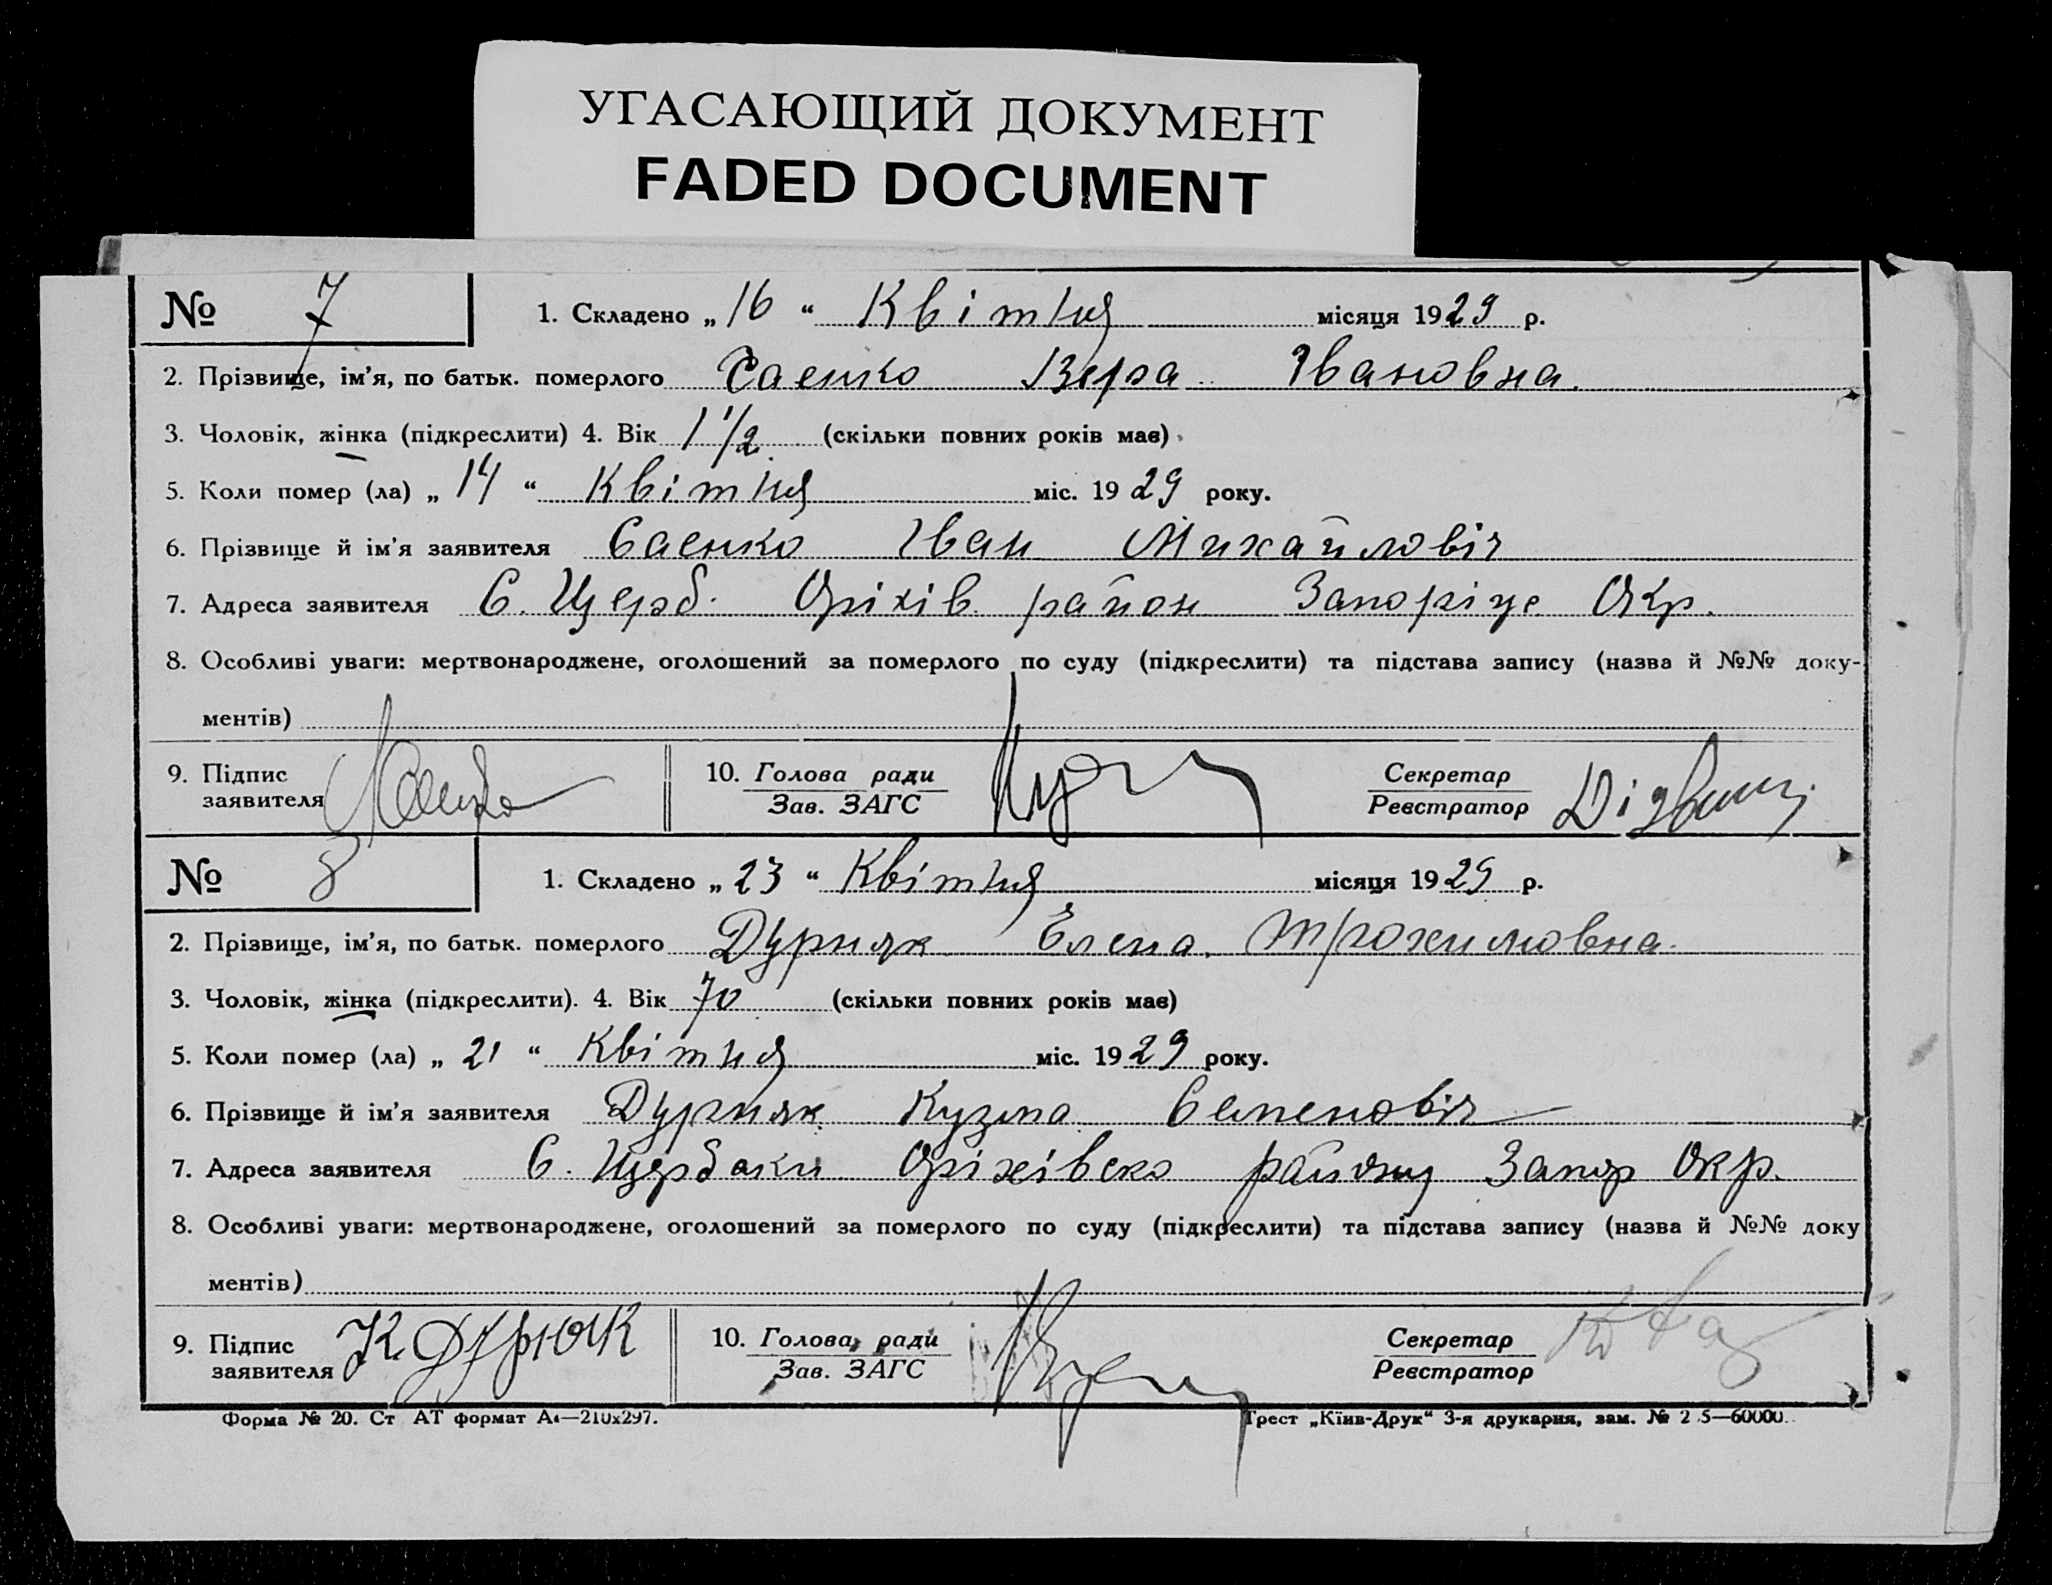 УГАСАЮЩИЙ ДОКУМЕНТ
FADED DOCUMENT
№ 7
1. Складено „ 16 “ Квітня місяця 1929 р.
2. Прізвище, ім’я, по батьк. померлого Саенко Вера Івановна.
3. Чоловік, жінка (підкреслити) 4. Вік 1 1/2 (скільки повних років має)
5. Коли помер (ла) „ 14 “ Квітня міс. 1929 року.
6. Прізвище й ім’я заявителя Саенко Іван Михайловіч
7. Адреса заявителя С. Щерб. Оріхів район Запоріце Окр.
8. Особливі уваги: мертвонароджене, оголошений за померлого по суду (підкреслити) та підстава запису (назва й №№ доку-
ментів)
9. Підпис заявителя
10. Голова ради
Зав. ЗАГС
Секретар
Реєстратор
№ 8
1. Складено „ 23 “ Квітня місяця 1929 р.
2. Прізвище, ім’я, по батьк. померлого Дурняк Елена Трохимовна.
3. Чоловік, жінка (підкреслити). 4. Вік 70 (скільки повних років має)
5. Коли помер (ла) „ 21 “ Квітня міс. 1929 року.
6. Прізвище й ім’я заявителя Дурняк Кузма Семеновіч
7. Адреса заявителя С. Щербаки Оріхівско району Запор Окр.
8. Особливі уваги: мертвонароджене, оголошений за померлого по суду (підкреслити) та підстава запису (назва й №№ доку
ментів)
9. Підпис заявителя К.
10. Голова ради
Зав. ЗАГС
Секретар
Реєстратор
Форма № 20. Ст АТ формат А4—210х297.
Трест „Київ-Друк“ 3-я друкарня, зам. № 2 5—60000.